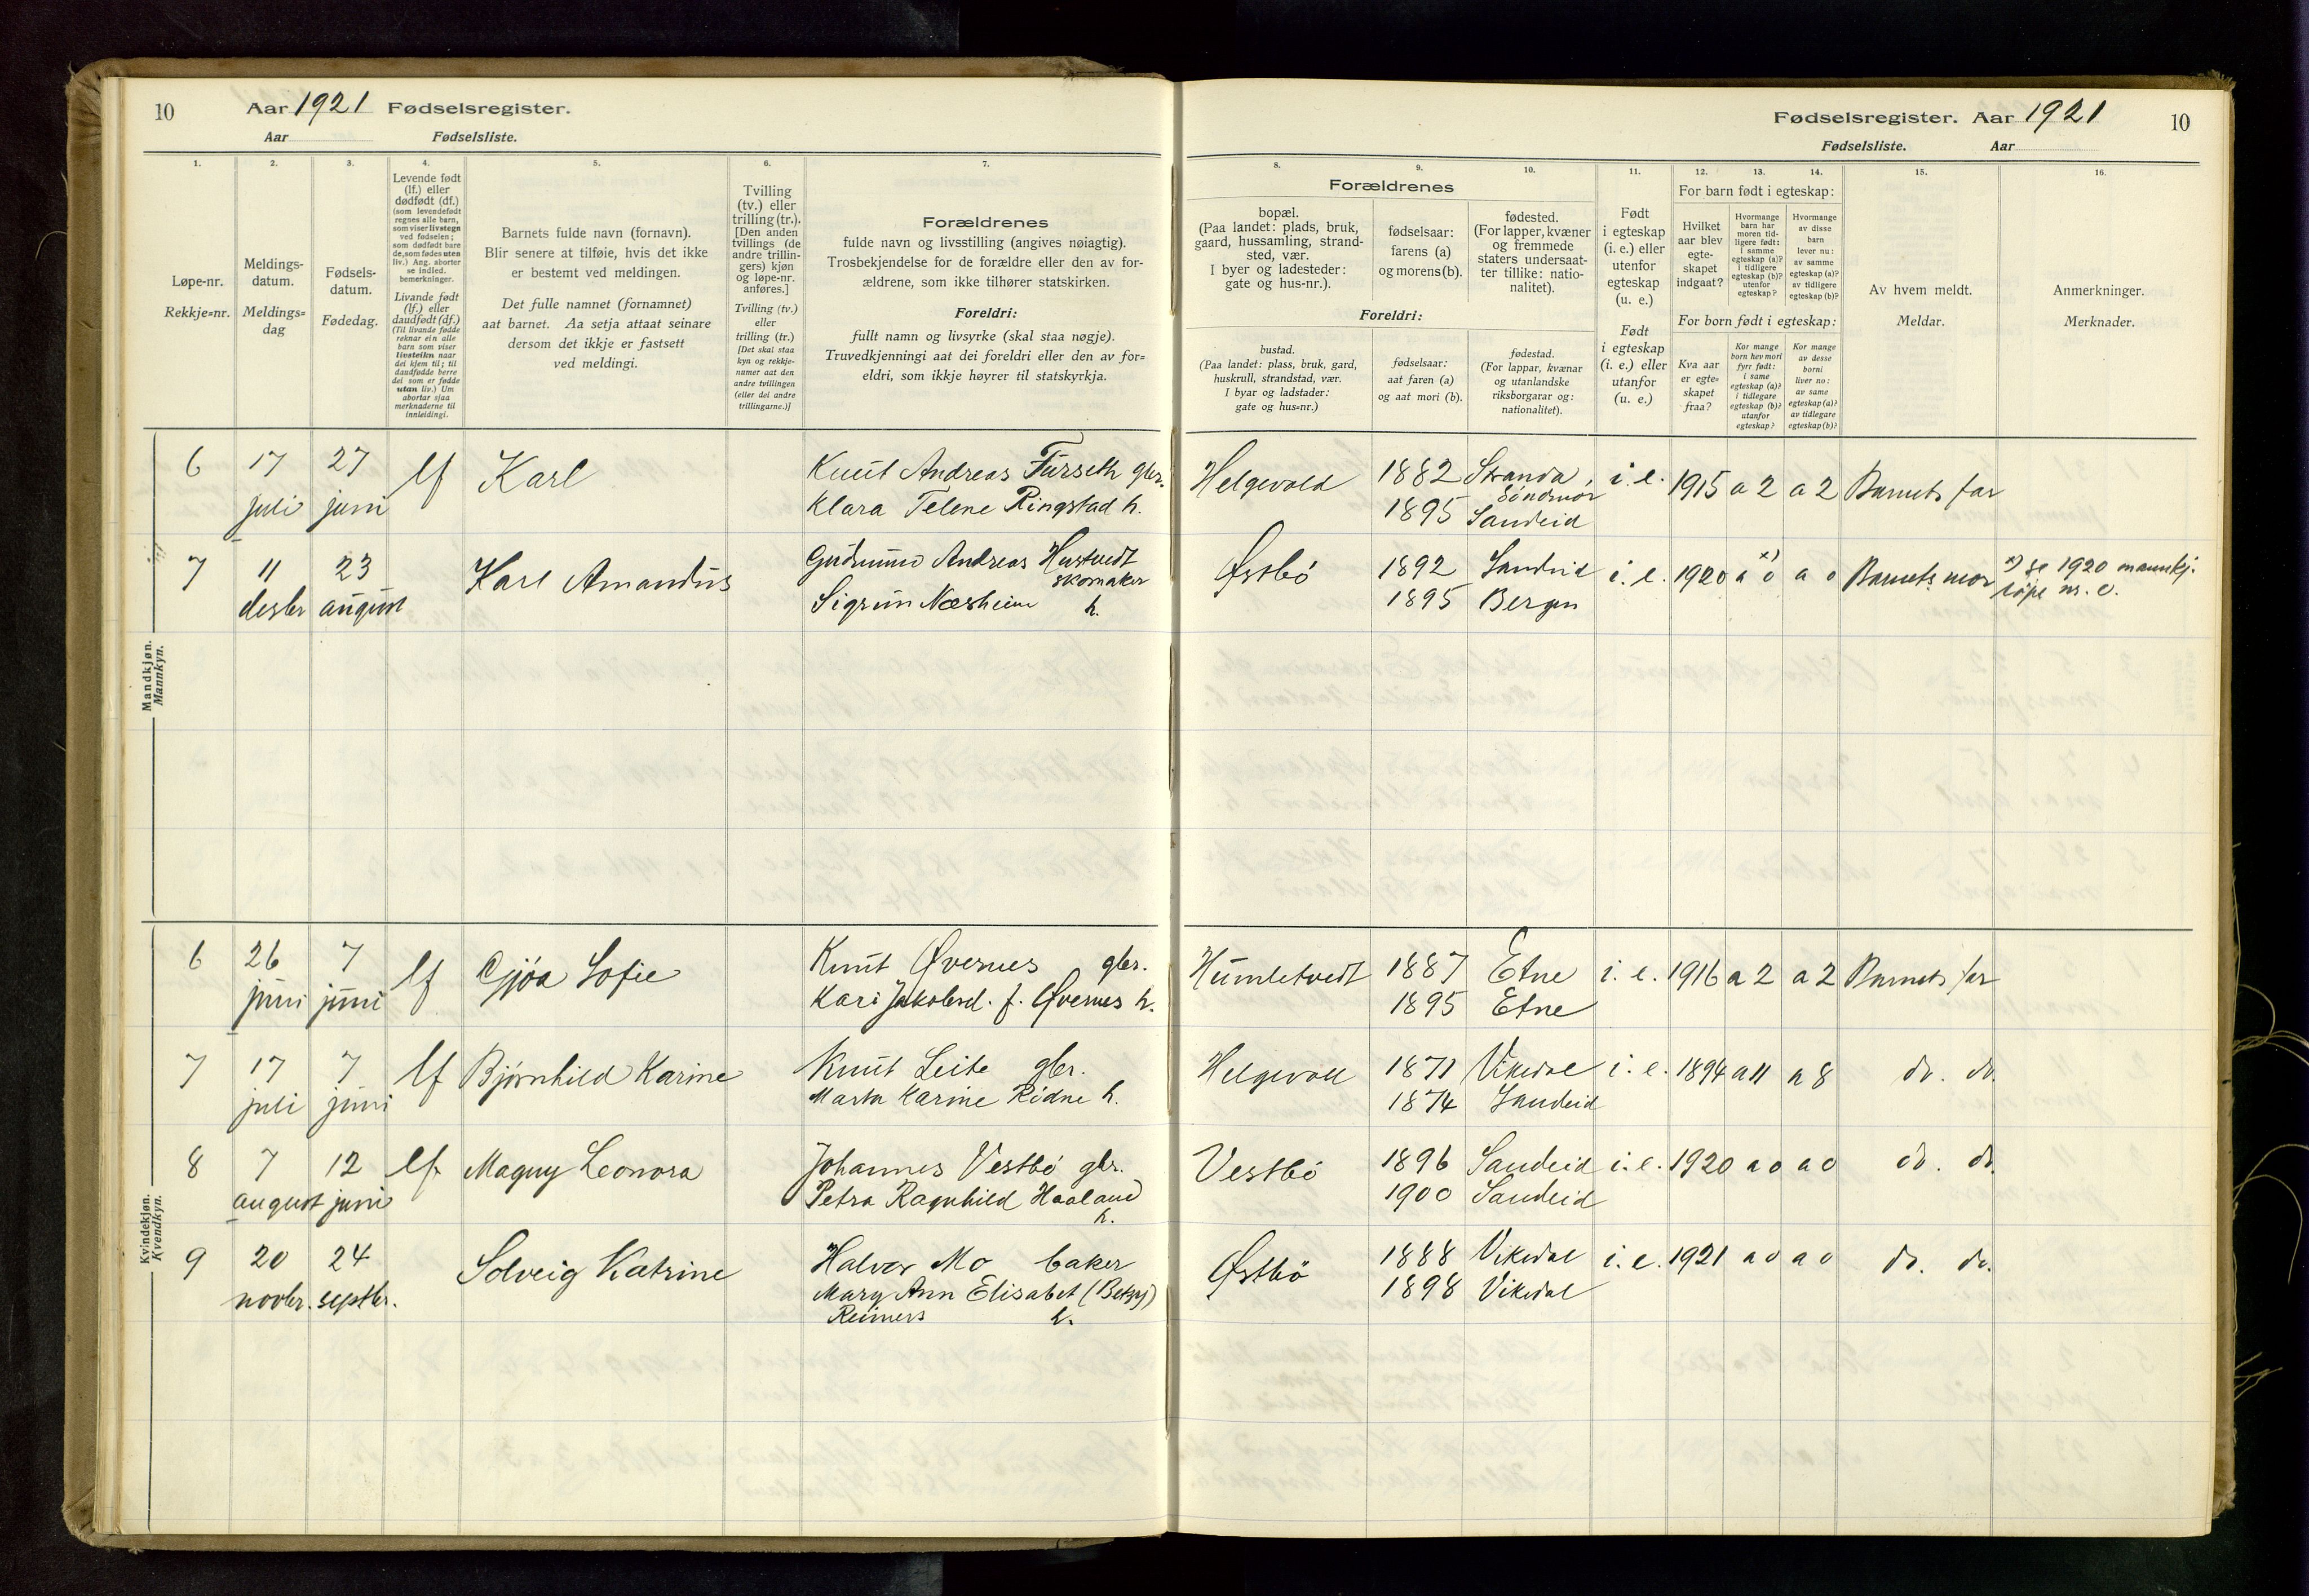 10 Aar 1921 Fødselsregister.
Aar Fødselsliste.
1. 2. 3. 4. 5. 6. 7.
Løpe-nr.
Rekkje=nr.
Meldings-
datum.
Meldings=
dag
Fødsels-
datum.
Fødedag.
Levende født
(lf.) eller
dødfødt (df.)
(som levendefødt
regnes alle barn,
som viser livstegn
ved fødselen;
som dødfødt bare
de, som fødes uten
liv.) Ang. aborter
se indled.
bemerkninger.
Livande født
(lf.) eller
daudfødt (df.)
(Til livande fødde
reknar ein alle
barn som viser
livsteikn naar
dei kjem til; til
daudfødde berre
dei som er fødde
utan liv.) Um
abortar sjaa
merknaderne til
innleidingi.
Barnets fulde navn (fornavn).
Blir senere at tilføie, hvis det ikke
er bestemt ved meldingen.
Det fulle namnet (fornamnet)
aat barnet. Aa setja attaat seinare
dersom det ikkje er fastsett
ved meldingi.
Tvilling
(tv.) eller
trilling (tr.).
[Den anden
tvillings (de
andre trillin-
gers) kjøn
og løpe-nr.
anføres.]
Tvilling (tv.)
eller
trilling (tr.)
[Det skal staa
kyn og rekkje-
numer aat den
andre tvillingen
(eller dei andre
trillingarne.)]
Forældrenes
fulde navn og livsstilling (angives nøiagtig).
Trosbekjendelse for de forældre eller den av for-
ældrene, som ikke tilhører statskirken.
Foreldri:
fullt namn og livsyrke (skal staa nøgje).
Truvedkjenningi aat dei foreldri eller den av for=
eldri, som ikkje høyrer til statskyrkja.
Mandkjøn.
Mannkyn.
6 17 27 lf Karl Knut Andreas Furseth gbr.
juli juni Klara Telene Ringstad h.
7 11 23 Karl Amandus Gudmund Andreas Hustvedt
skomaker
desbr august Sigrun Næsheim h.
Kvindekjøn.
Kvendkyn.
6 26 7 lf Gjøa Sofie Knut Øvernes gbr.
juni juni Kari Jakobsd. f. Øvernes h.
7 17 7 lf Bjørnhild Karine Knut Leite gbr.
juli juni Marta Karine Ridne h.
8 7 12 lf Magny Leonora Johannes Vestbø gbr.
august juni Petra Ragnhild Haaland
h.
9 20 24 Solveig Katrine Halvor Mo baker
novbr. septbr. Mary Ann Elisabet (Betzy)
Reimers h.
Fødselsregister. Aar 1921 10
Fødselsliste. Aar
8. 9. 10. 11. 12. 13. 14. 15. 16.
Forældrenes
bopæl.
(Paa landet: plads, bruk,
gaard, hussamling, strand-
sted, vær.
I byer og ladesteder:
gate og hus-nr.).
fødselsaar:
farens (a)
og morens (b).
fødested.
(For lapper, kvæner
og fremmede
staters undersaat-
ter tillike: natio-
nalitet).
Foreldri:
bustad.
(Paa landet: plass, bruk, gard,
huskrull, strandstad, vær.
I byar og ladstader:
gate og hus=nr.)
fødselsaar:
aat faren (a)
og aat mori (b).
fødestad.
(For lappar, kvænar
og utanlandske
riksborgarar og:
nationalitet).
Født
i egteskap
(i. e.) eller
utenfor
egteskap
(u. e.)
Født
i egteskap
(i. e.) eller
utanfor
(u. e.)
For barn født i egteskap:
Hvilket
aar blev
egte-
skapet
indgaat?
Hvormange
barn har
moren tid-
ligere født:
i samme
egteskap (a)?
i tidligere
egteskap (b)?
utenfor
egteskap?
Hvormange
av disse
barn
lever nu:
av samme
egteskap (a)?
av tidligere
egteskap (b)?
For born født i egteskap:
Kva aar
er egte=
skapet
fraa?
Kor mange
born hev mori
fyrr født:
i same
egteskap (a)?
i tidlegare
egteskap (b)?
utanfor
egteskap?
Kor mange
av desse
borni
liver no:
av same
egteskap (a)?
av tidlegare
egteskap (b)?
Av hvem meldt.
Meldar.
Anmerkninger.
Merknader.
Helgevold 1882 Stranda, i. e. 1915 a 2 a 2 Barnets far
Söndmör
1895 Sandeid
Østbö 1892 Sandeid i. e. 1920 a 0 x) a 0 Barnets mor x) se 1920 mannkj.
1895 Bergen løpe nr.
Humletvedt 1887 Etne i. e. 1916 a 2 a 2 Barnets far
1895 Etne
Helgevold 1871 Vikedal i. e. 1894 a 11 a 8 do. do.
1874 Sandeid
Vestbö 1896 Sandeid i. e. 1920 a 0 a 0 do. do.
1900 Sandeid
Østbö 1888 Vikedal i. e. 1921 a 0 a 0 do. do.
1898 Vikedal